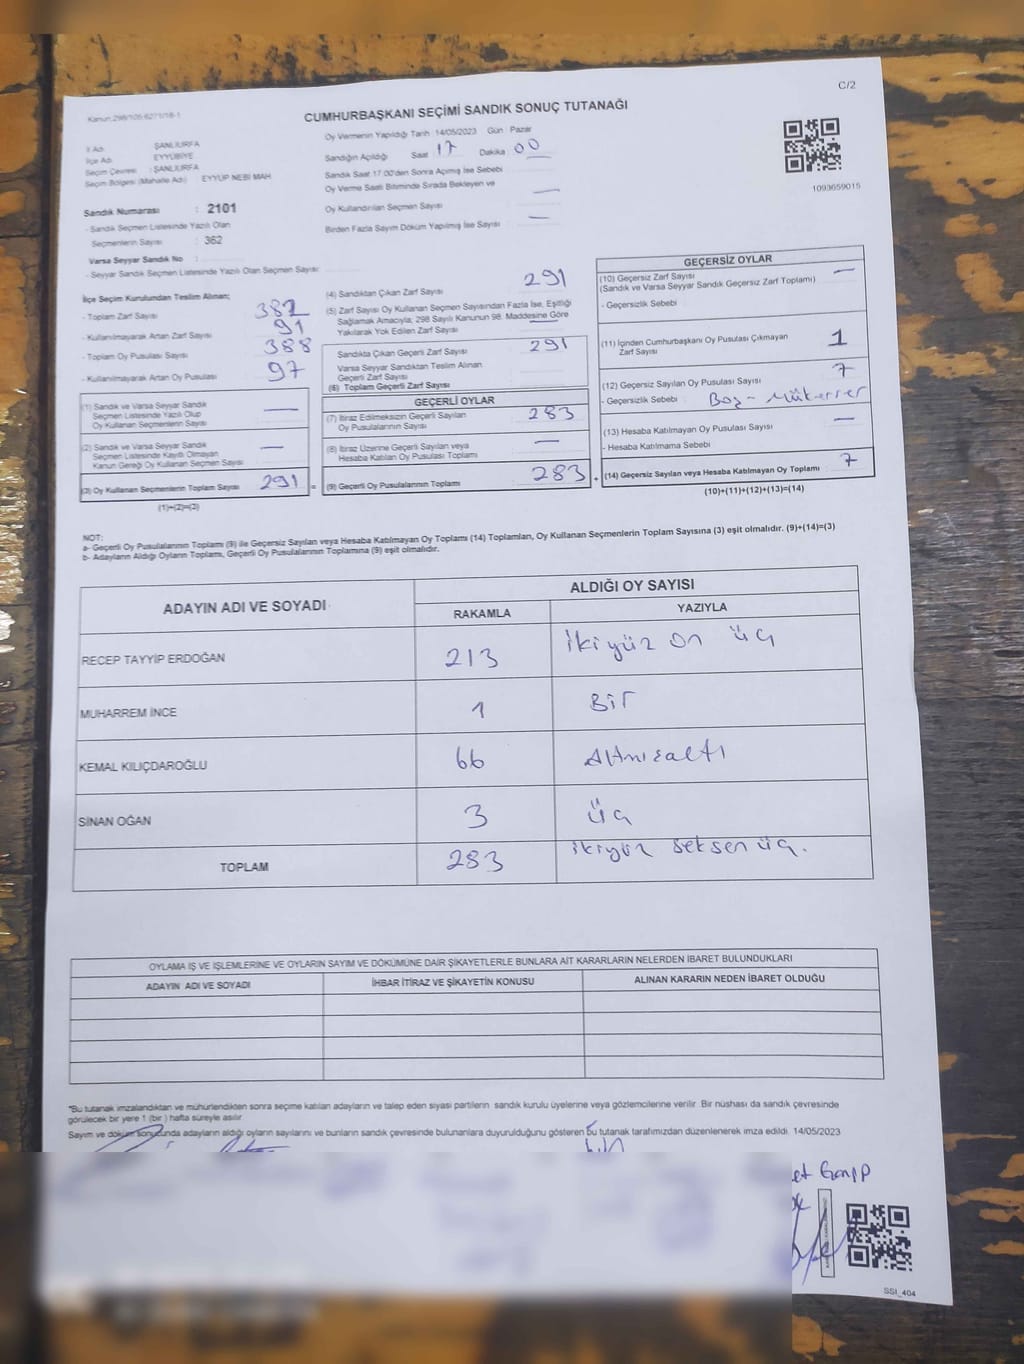 C/2
Kanun 298/105-6271/18-1
CUMHURBAŞKANI SEÇİMİ SANDIK SONUÇ TUTANAĞI
Oy Vermenin Yapıldığı Tarih 14/05/2023 Gün Pazar
İl Adı : ŞANLIURFA
İlçe Adı : EYYÜBİYE
Seçim Çevresi : ŞANLIURFA
Seçim Bölgesi (Mahalle Adı) : EYYUP NEBI MAH
Sandığın Açıldığı Saat 17 Dakika 00
Sandık Saat 17.00'den Sonra Açılmış İse Sebebi
Oy Verme Saati Bitiminde Sırada Bekleyen ve
Oy Kullandırılan Seçmen Sayısı
Birden Fazla Sayım Döküm Yapılmış İse Sayısı
1093659015
Sandık Numarası : 2101
- Sandık Seçmen Listesinde Yazılı Olan
Seçmenlerin Sayısı : 362
Varsa Seyyar Sandık No :
- Seyyar Sandık Seçmen Listesinde Yazılı Olan Seçmen Sayısı:
İlçe Seçim Kurulundan Teslim Alınan;
- Toplam Zarf Sayısı 382
- Kullanılmayarak Artan Zarf Sayısı 91
- Toplam Oy Pusulası Sayısı 388
- Kullanılmayarak Artan Oy Pusulası 97
(1) Sandık ve Varsa Seyyar Sandık
Seçmen Listesinde Yazılı Olup
Oy Kullanan Seçmenlerin Sayısı
(2) Sandık ve Varsa Seyyar Sandık
Seçmen Listesinde Kayıtlı Olmayan
Kanun Gereği Oy Kullanan Seçmen Sayısı
(3) Oy Kullanan Seçmenlerin Toplam Sayısı 291 =
(1)+(2)=(3)
(4) Sandıktan Çıkan Zarf Sayısı 291
(5) Zarf Sayısı Oy Kullanan Seçmen Sayısından Fazla İse, Eşitliği
Sağlamak Amacıyla, 298 Sayılı Kanunun 98. Maddesine Göre
Yakılarak Yok Edilen Zarf Sayısı
Sandıkta Çıkan Geçerli Zarf Sayısı 291
Varsa Seyyar Sandıktan Teslim Alınan
Geçerli Zarf Sayısı
(6) Toplam Geçerli Zarf Sayısı
GEÇERLİ OYLAR
(7) İtiraz Edilmeksizin Geçerli Sayılan 283
Oy Pusulalarının Sayısı
(8) İtiraz Üzerine Geçerli Sayılan veya
Hesaba Katılan Oy Pusulası Toplamı
(9) Geçerli Oy Pusulalarının Toplamı 283 +
GEÇERSİZ OYLAR
(10) Geçersiz Zarf Sayısı
(Sandık ve Varsa Seyyar Sandık Geçersiz Zarf Toplamı)
- Geçersizlik Sebebi
(11) İçinden Cumhurbaşkanı Oy Pusulası Çıkmayan 1
Zarf Sayısı
(12) Geçersiz Sayılan Oy Pusulası Sayısı 7
- Geçersizlik Sebebi : Boş - Mükerrer
(13) Hesaba Katılmayan Oy Pusulası Sayısı
- Hesaba Katılmama Sebebi
(14) Geçersiz Sayılan veya Hesaba Katılmayan Oy Toplamı 7
(10)+(11)+(12)+(13)=(14)
NOT:
a- Geçerli Oy Pusulalarının Toplamı (9) ile Geçersiz Sayılan veya Hesaba Katılmayan Oy Toplamı (14) Toplamları, Oy Kullanan Seçmenlerin Toplam Sayısına (3) eşit olmalıdır. (9)+(14)=(3)
b- Adayların Aldığı Oyların Toplamı, Geçerli Oy Pusulalarının Toplamına (9) eşit olmalıdır.
ADAYIN ADI VE SOYADI
ALDIĞI OY SAYISI
RAKAMLA YAZIYLA
RECEP TAYYİP ERDOĞAN 213 ikiyüz on üç
MUHARREM İNCE 1 Bir
KEMAL KILIÇDAROĞLU 66 Altmışaltı
SİNAN OĞAN 3 üç
TOPLAM 283 ikiyüz seksen üç.
OYLAMA İŞ VE İŞLEMLERİNE VE OYLARIN SAYIM VE DÖKÜMÜNE DAİR ŞİKAYETLERLE BUNLARA AİT KARARLARIN NELERDEN İBARET BULUNDUKLARI
ADAYIN ADI VE SOYADI İHBAR İTİRAZ VE ŞİKAYETİN KONUSU ALINAN KARARIN NEDEN İBARET OLDUĞU
*Bu tutanak imzalandıktan ve mühürlendikten sonra seçime katılan adayların ve talep eden siyasi partilerin sandık kurulu üyelerine veya gözlemcilerine verilir. Bir nüshası da sandık çevresinde
görülecek bir yere 1 (bir) hafta süreyle asılır.
Sayım ve döküm sonucunda adayların aldığı oyların sayılarını ve bunların sandık çevresinde bulunanlara duyurulduğunu gösteren bu tutanak tarafımızdan düzenlenerek imza edildi. 14/05/2023
SSI_404